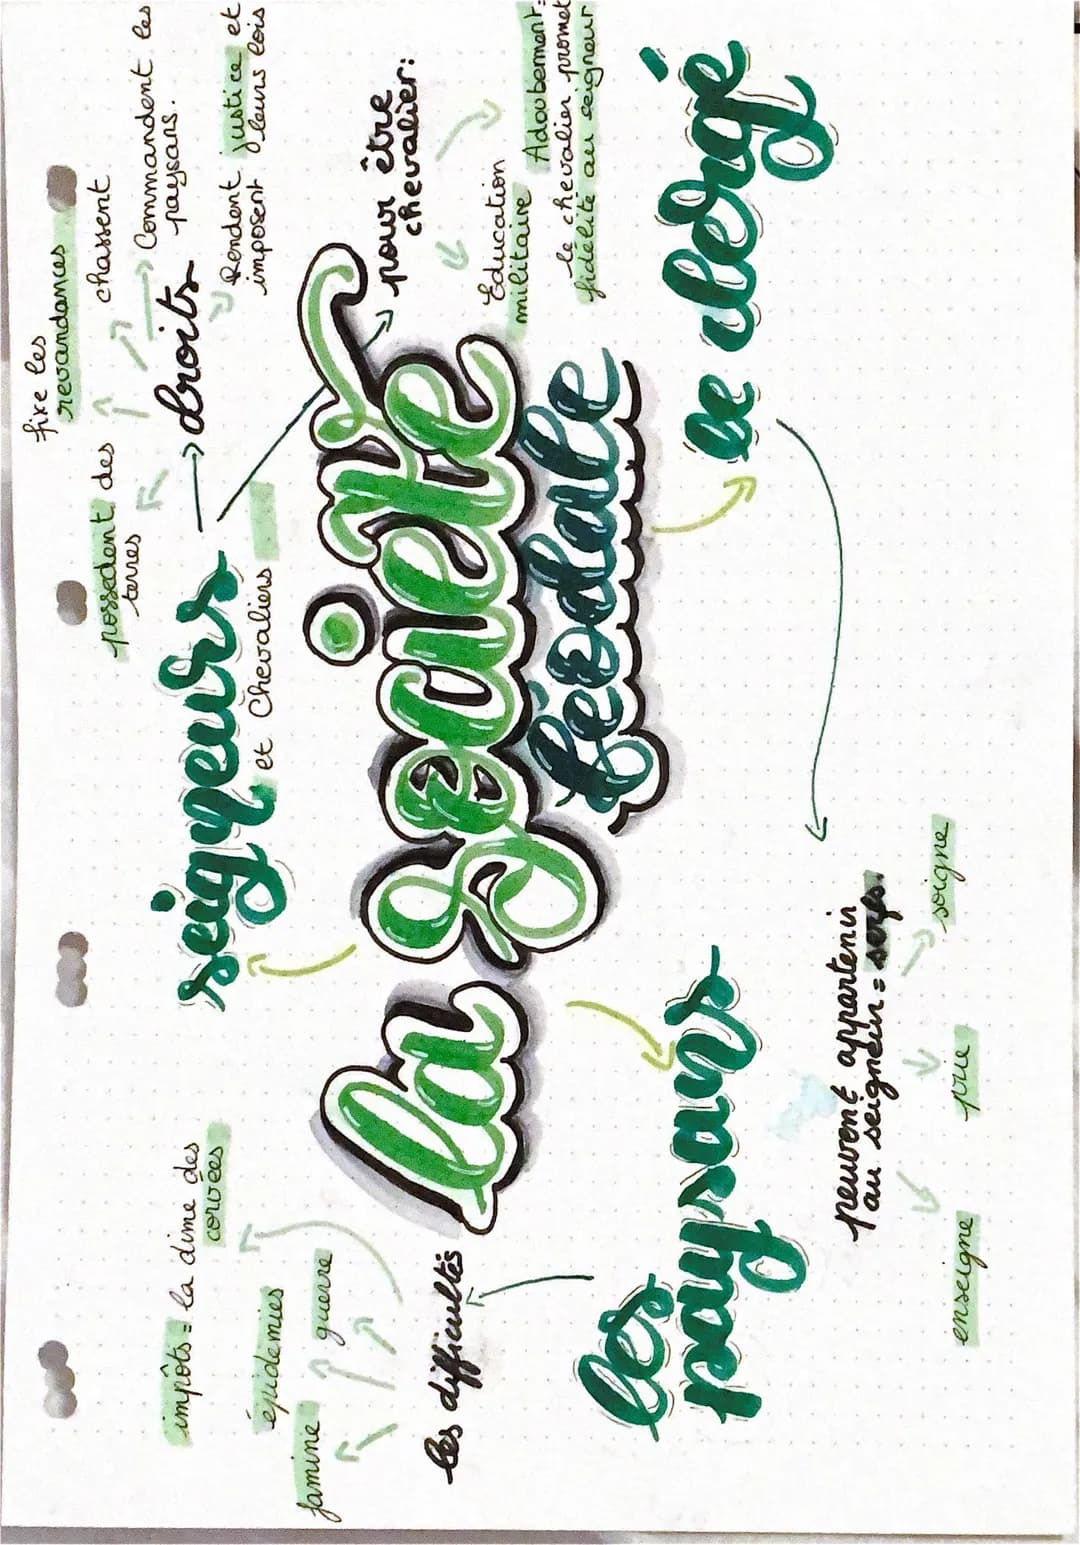 la société
féodale
seigneurs
et Chevaliers
droits
possedent des
terres
fixe les
revandances
chassent
Commandent les
paysans.
Rendent justice et
imposent leurs lois
pour être
chevalier:
Education
militaire
Adoubement=
le chevalier promet
fidélité au seigneur
le clergé
les
paysans
les difficultés
famine
épidémies
guerre
impôts = la dime des
corvées
peuvent appartenir
au seigneur = serfs.
enseigne
prie
soigne